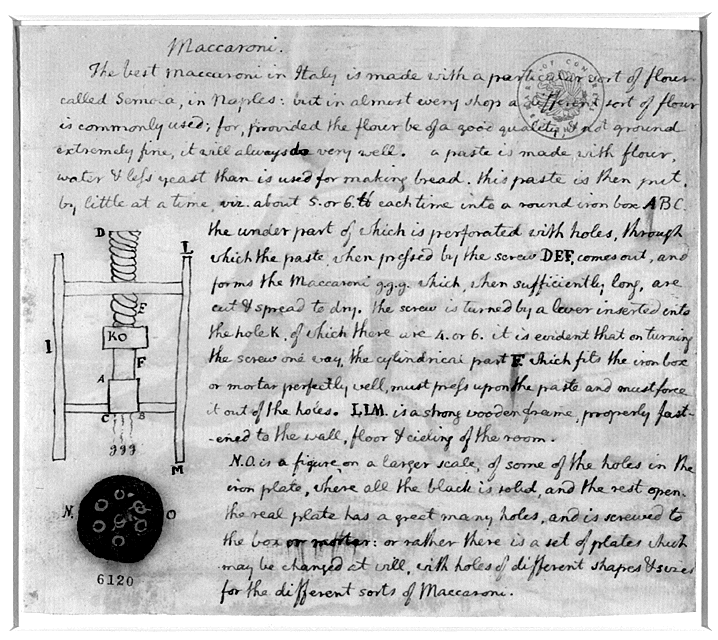 Maccaroni.
The best maccaroni in Italy is made with a particular sort of flour
called Semola, in Naples: but in almost every shop a different sort of flour
is commonly used; for, provided the flour be of a good quality, & not ground
extremely fine, it will always do very well. a paste is made with flour,
water & less yeast than is used for making bread. this paste is then put,
by little at a time viz. about 5. or 6. ℔ each time into a round iron box ABC.
the under part of which is perforated with holes, through
which the paste, when pressed by the screw DEF, comes out, and
forms the Maccaroni g.g.g. which, when sufficiently long, are
cut & spread to dry. the screw is turned by a lever inserted into
the hole K, of which there are 4. or 6. it is evident that on turning
the screw one way, the cylindrical part F. which fits the iron box
or mortar perfectly well, must press upon the paste and must force
it out of the holes. LLM. is a strong wooden frame, properly fast-
-ened to the wall, floor & cieling of the room.
N.O. is a figure, on a larger scale, of some of the holes in the
iron plate, where all the black is solid, and the rest open.
the real plate has a great many holes, and is screwed to
the box or mortar: or rather there is a set of plates which
may be changed at will, with holes of different shapes & sizes
for the different sorts of Maccaroni.
D
L
E
KO
I
F
A
C
B
ggg
M
N
O
6120